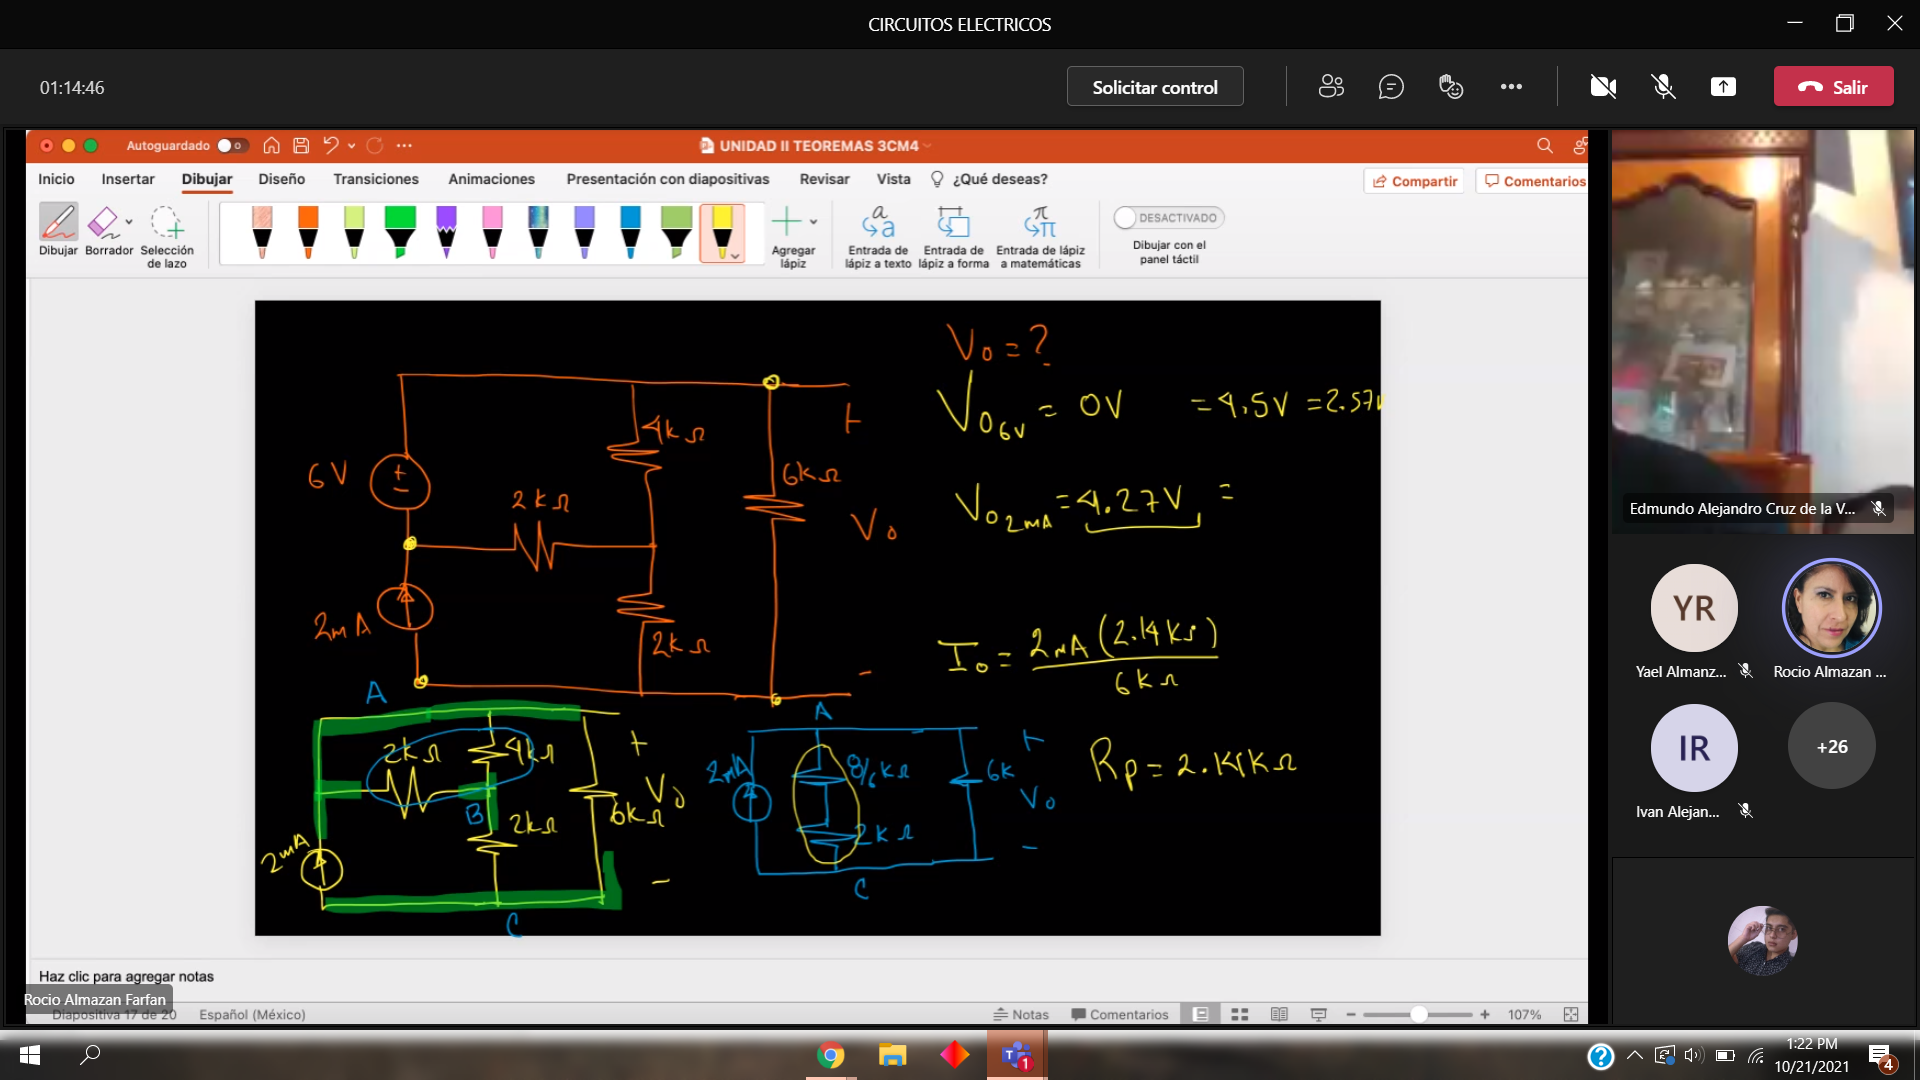 CIRCUITOS ELECTRICOS
01:14:46
Solicitar control
Salir
Autoguardado
UNIDAD II TEOREMAS 3CM4
Inicio Insertar Dibujar Diseño Transiciones Animaciones Presentación con diapositivas Revisar Vista ¿Qué deseas? Compartir Comentarios
Dibujar Borrador Selección de lazo
Agregar lápiz
Entrada de lápiz a texto
Entrada de lápiz a forma
Entrada de lápiz a matemáticas
DESACTIVADO
Dibujar con el panel táctil
Vo = ?
Vo6V = 0V = 4.5V = 2.57V
Vo2mA = 4.27V =
Io = 2mA (2.14KΩ)
6kΩ
Rp = 2.14kΩ
6V
+
-
4kΩ
+
2kΩ
6kΩ
Vo
2mA
2kΩ
-
A
2kΩ
4kΩ
+
B
2kΩ
6kΩ
Vo
2mA
-
C
A
2mA
8/6kΩ
6k
+
Vo
2kΩ
-
C
Haz clic para agregar notas
Rocio Almazan Farfan
Diapositiva 17 de 20 Español (México) Notas Comentarios 107%
Edmundo Alejandro Cruz de la V...
YR
Yael Almanz...
Rocio Almazan ...
IR
Ivan Alejan...
+26
1
1:22 PM
10/21/2021
4